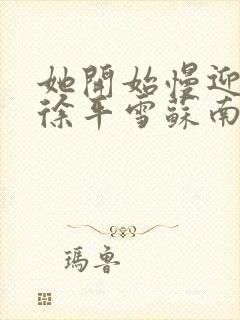 她開始慢迎
徐年雪蘇南
瑪魯